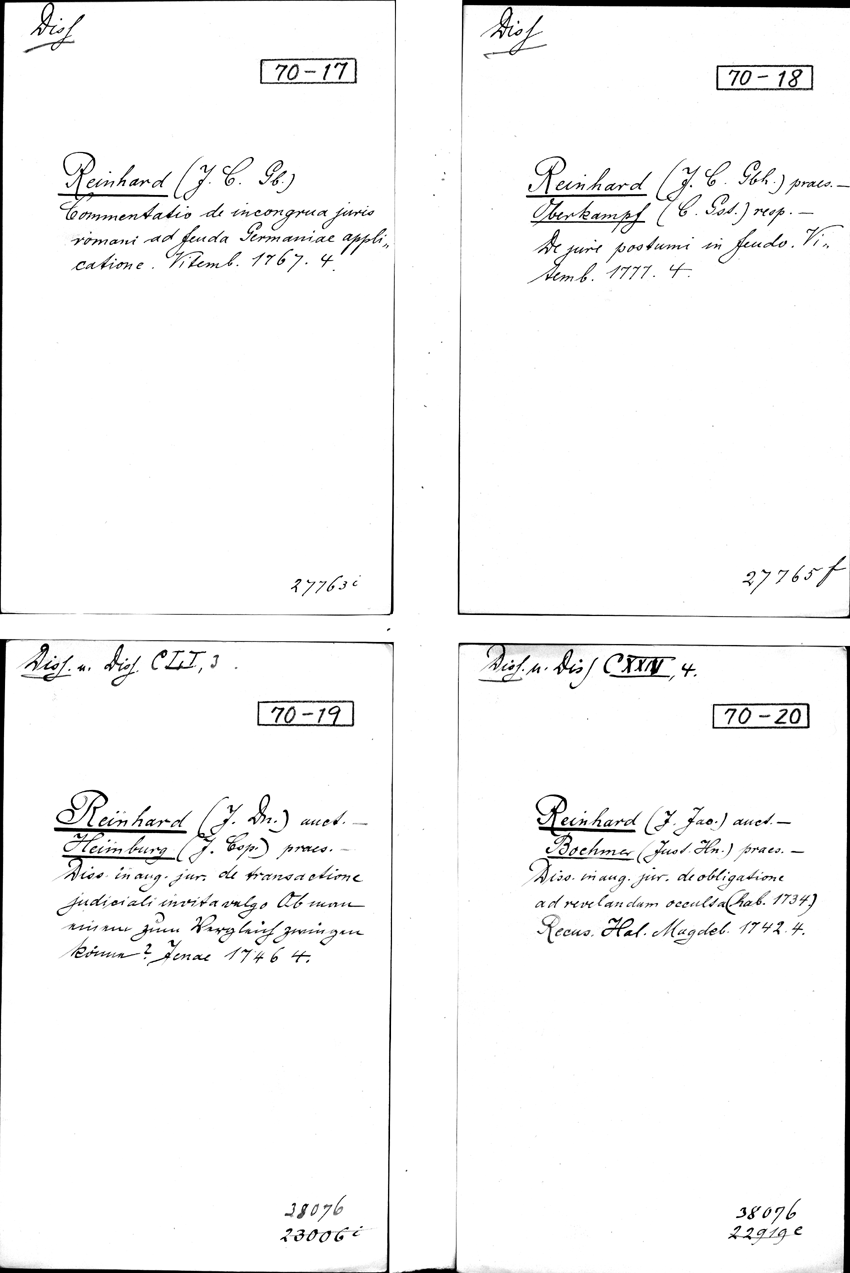 Diss
70-17
Reinhard (J. C. Gb.)
Commentatio de incongrua juris
romani ad feuda Germaniae appli„
catione. Vitemb. 1767. 4.
27763i
Diss
70-18
Reinhard (J. C. Gbh.) praes.—
Oberkampf (C. Gst.) resp.—
De jure postumi in feudo. Vi„
temb. 1777. 4.
27765f
Diss. u. Diss. CLI, 3.
70-19
Reinhard (J. Dn.) auct.—
Heimburg (J. Csp.) praes.—
Diss. inaug. jur. de transactione
judiciali invita vulgo Ob man
einen zum Vergleich zwingen
könne? Jenae 1746 4.
38076
23006i
Diss. u. Diss CXXIV, 4.
70-20
Reinhard (J. Jac.) auct.—
Boehmer (Just. Hn.) praes.—
Diss. inaug. jur. de obligatione
ad revelandum occulta (hab. 1734)
Recus. Hal. Magdeb. 1742. 4.
38076
22919e